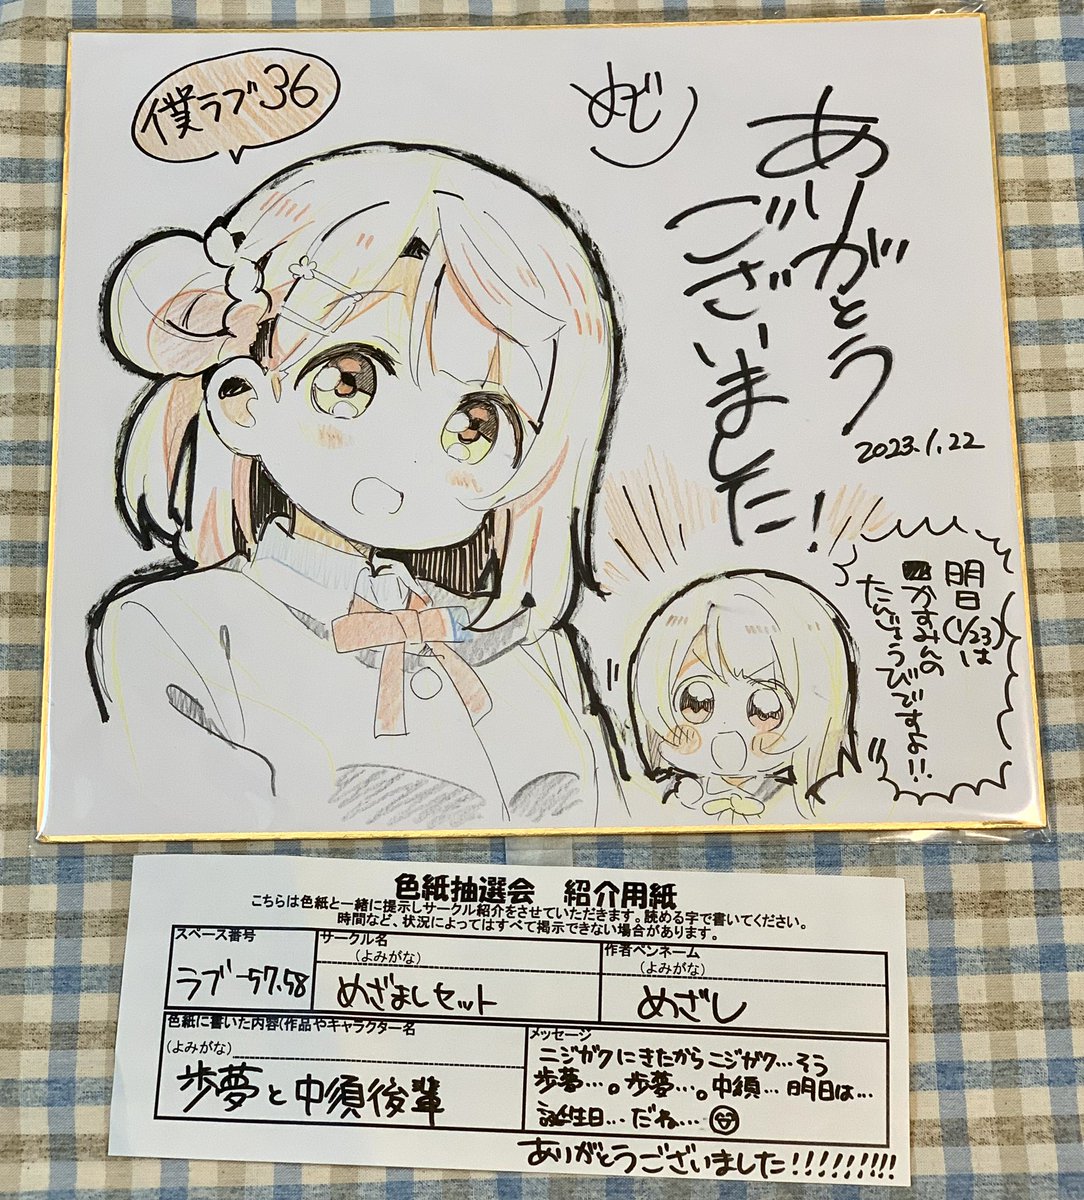 僕ラブ36
めざし
ありがとう
ございました!
2023.1.22
明日(1/23)は
かすみんの
たんじょうびですよ!!
色紙抽選会 紹介用紙
こちらは色紙と一緒に提示しサークル紹介をさせていただきます。読める字で書いてください。
時間など、状況によってはすべて掲示できない場合があります。
スペース番号
ラブ-57.58
サークル名
(よみがな)
めざましセット
作者ペンネーム
(よみがな)
めざし
色紙に書いた内容(作品やキャラクター名
(よみがな)
歩夢と中須後輩
メッセージ
ニジガクにきたからニジガク…そう
歩夢…。歩夢…。中須…明日は…
誕生日…だね…
ありがとうございました!!!!!!!!!